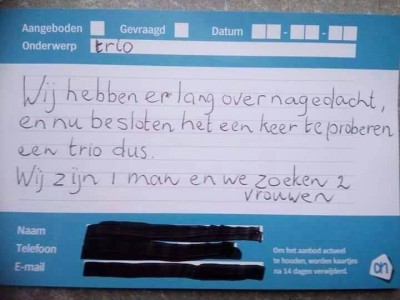 Aangeboden Gevraagd Datum
Onderwerp trio
Wij hebben er lang over nagedacht,
en nu besloten het een keer te proberen
een trio dus.
Wij zijn 1 man en we zoeken 2
vrouwen
Naam
Telefoon
E-mail
Om het aanbod actueel
te houden, worden kaartjes
na 14 dagen verwijderd.
ah